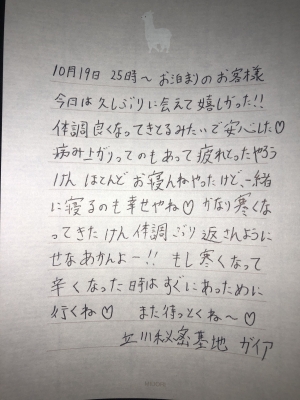 10月19日 25時〜 お泊まりのお客様
今日は久しぶりに会えて嬉しかった!!
体調良くなってきてるみたいで安心した♡
病み上がりってのもあって疲れとったやろう
けん ほとんどお寝んねやったけど、一緒
に寝るのも幸せやね♡ かなり寒くな
ってきたけん体調ぶり返さんように
せなあかんよー!! もし寒くなって
辛くなった時はすぐにあっために
行くね♡ また待っとくね〜♡
立川秘密基地 ガイア